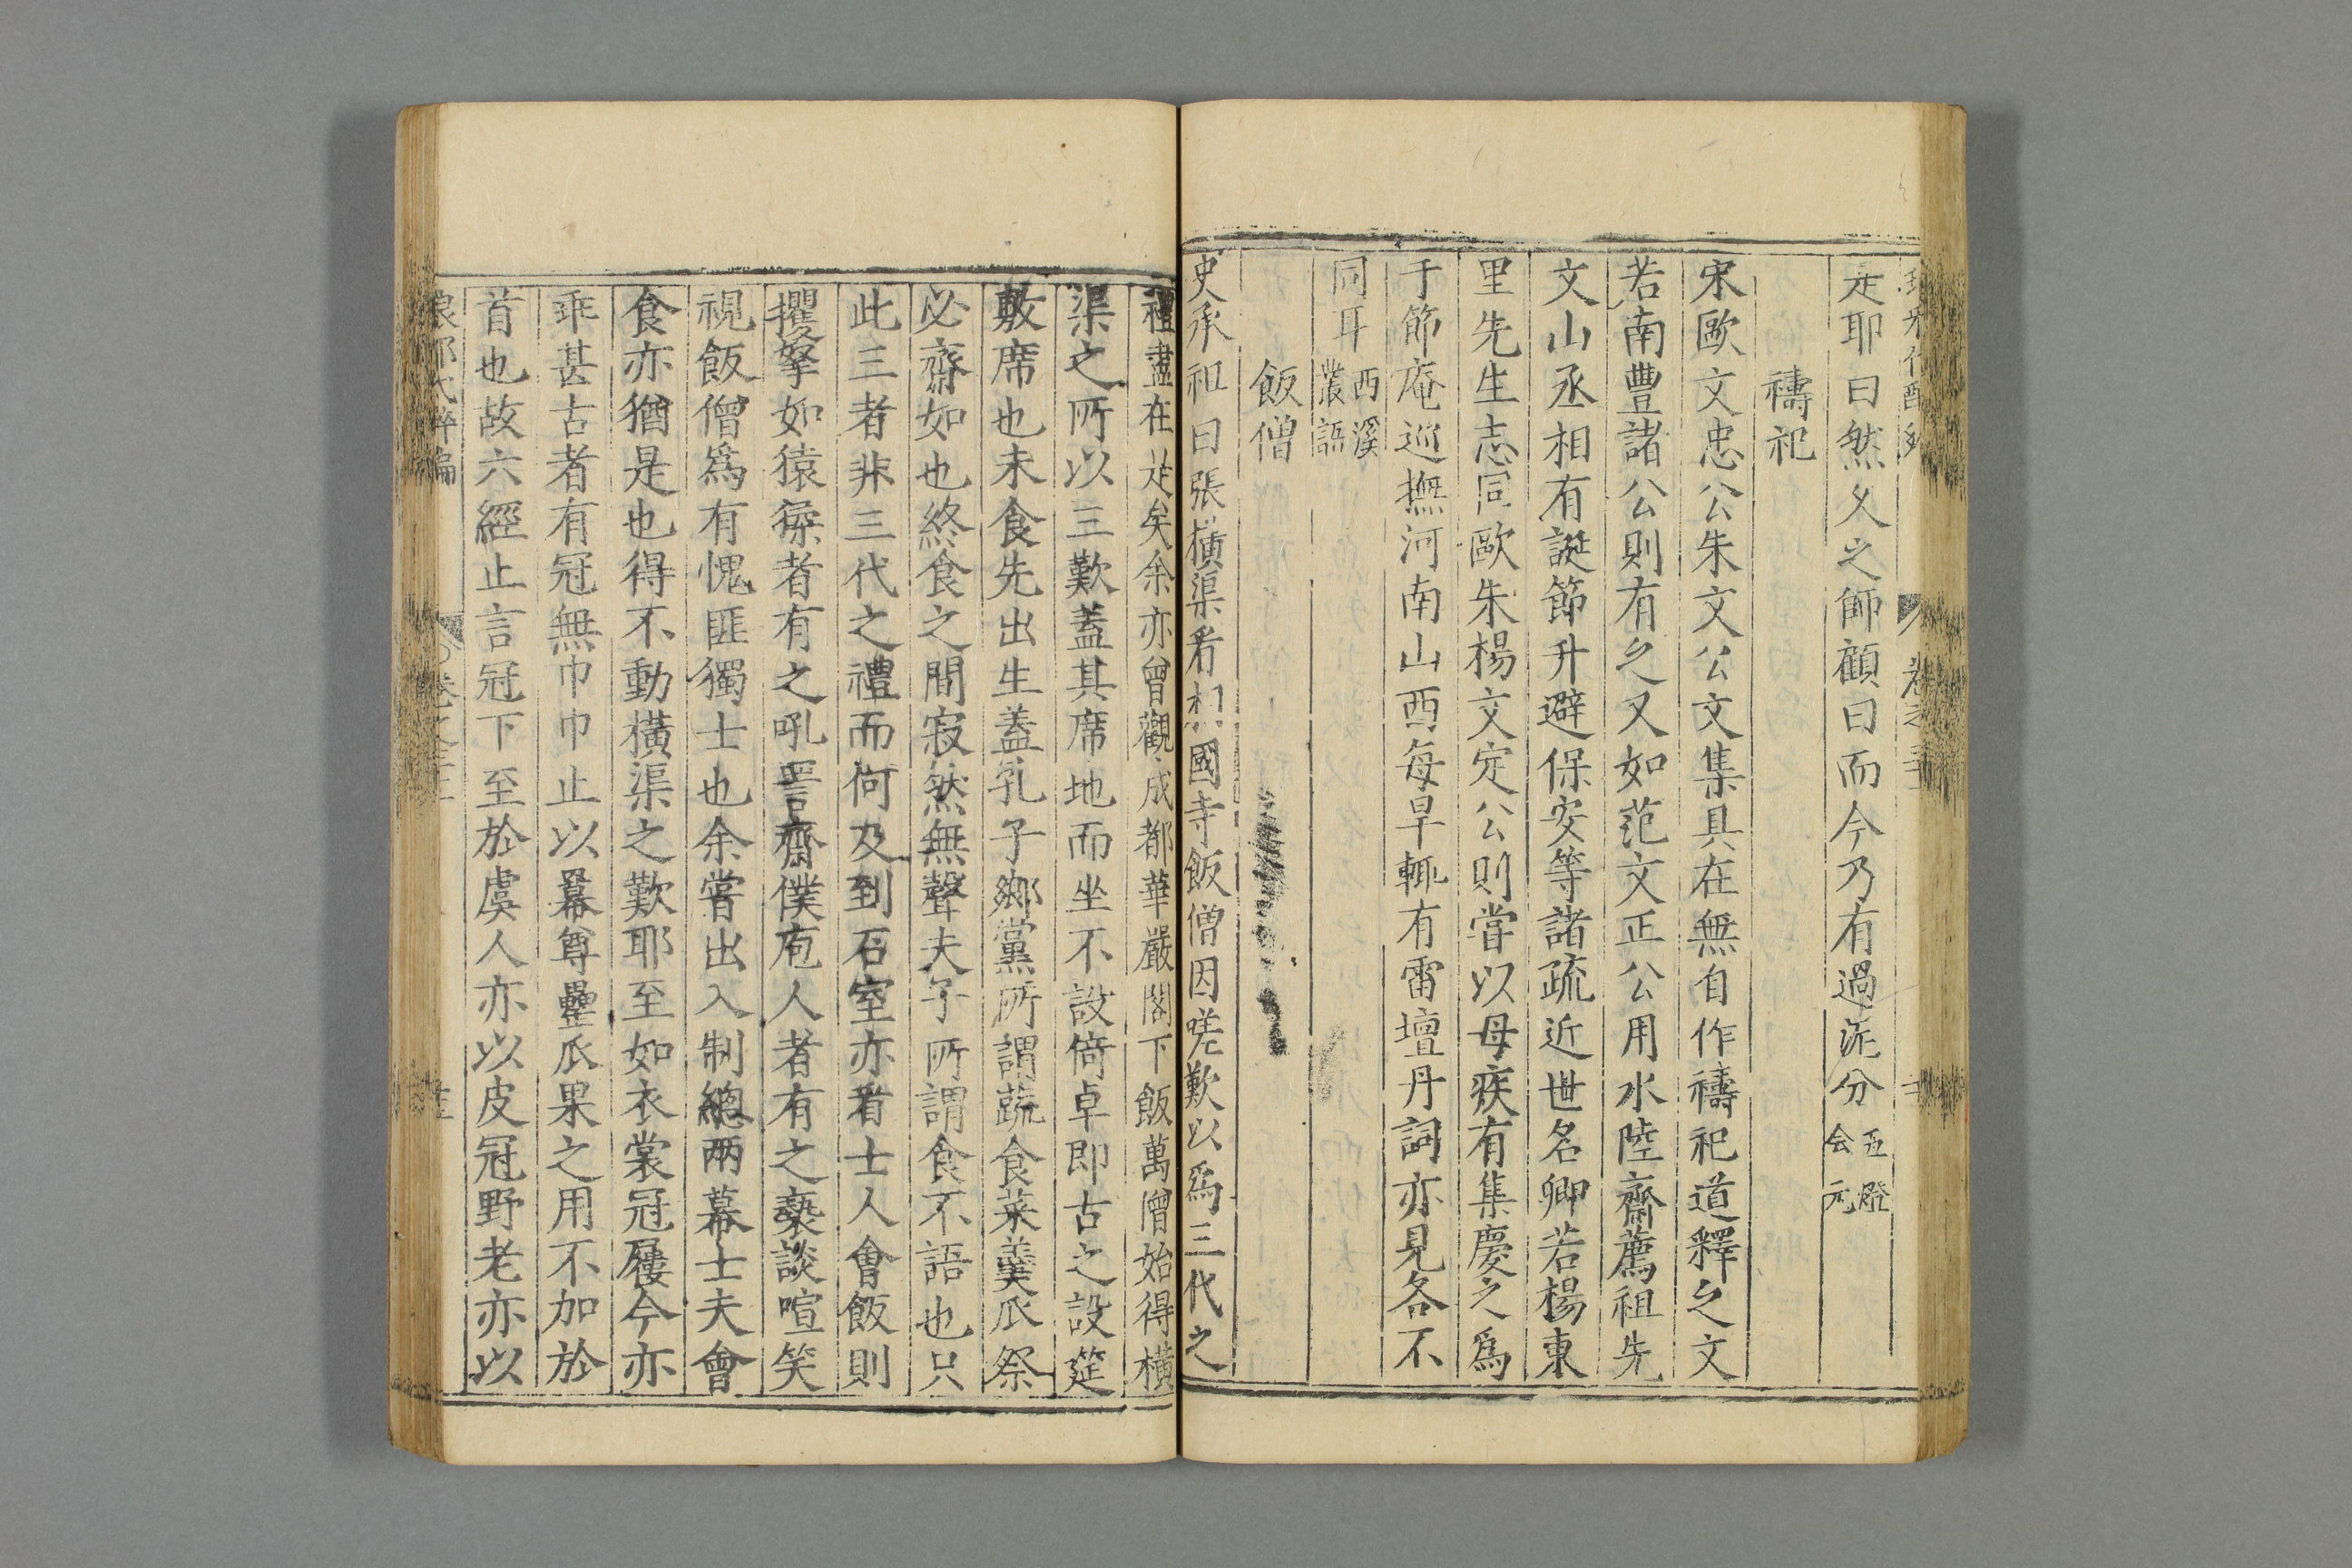 是耶曰然父之師顧曰而今乃有過泥分五燈会元
禱祀
宋歐文忠公朱文公文集具在無自作禱祀道釋之文
若南豐諸公則有之又如范文正公用水陸齋薦祖先
文山丞相有誕節升避保安等諸疏近世名卿若楊東
里先生志同歐朱楊文定公則嘗以母疾有集慶之爲
于節庵巡撫河南山西每旱輒有雷壇丹詞亦見各不
同耳西溪叢語
飯僧
史承祖曰張橫渠看相國寺飯僧因嗟歎以爲三代之
禮盡在是矣余亦曾觀成都華嚴閣下飯萬僧始得橫
渠之所以三歎蓋其席地而坐不設倚卓即古之設筵
敷席也未食先出生蓋孔子鄉黨所謂蔬食菜羹瓜祭
必齋如也終食之間寂然無聲夫子所謂食不語也只
此三者非三代之禮而何及到石室亦看士人會飯則
攫拏如猿猱者有之吼詈齋僕庖人者有之褻談喧笑
視飯僧爲有愧匪獨士也余嘗出入制總兩幕士夫會
食亦猶是也得不動橫渠之歎耶至如衣裳冠屨今亦
乖甚古者有冠無巾巾止以羃尊罍瓜果之用不加於
首也故六經止言冠下至於虞人亦以皮冠野老亦以